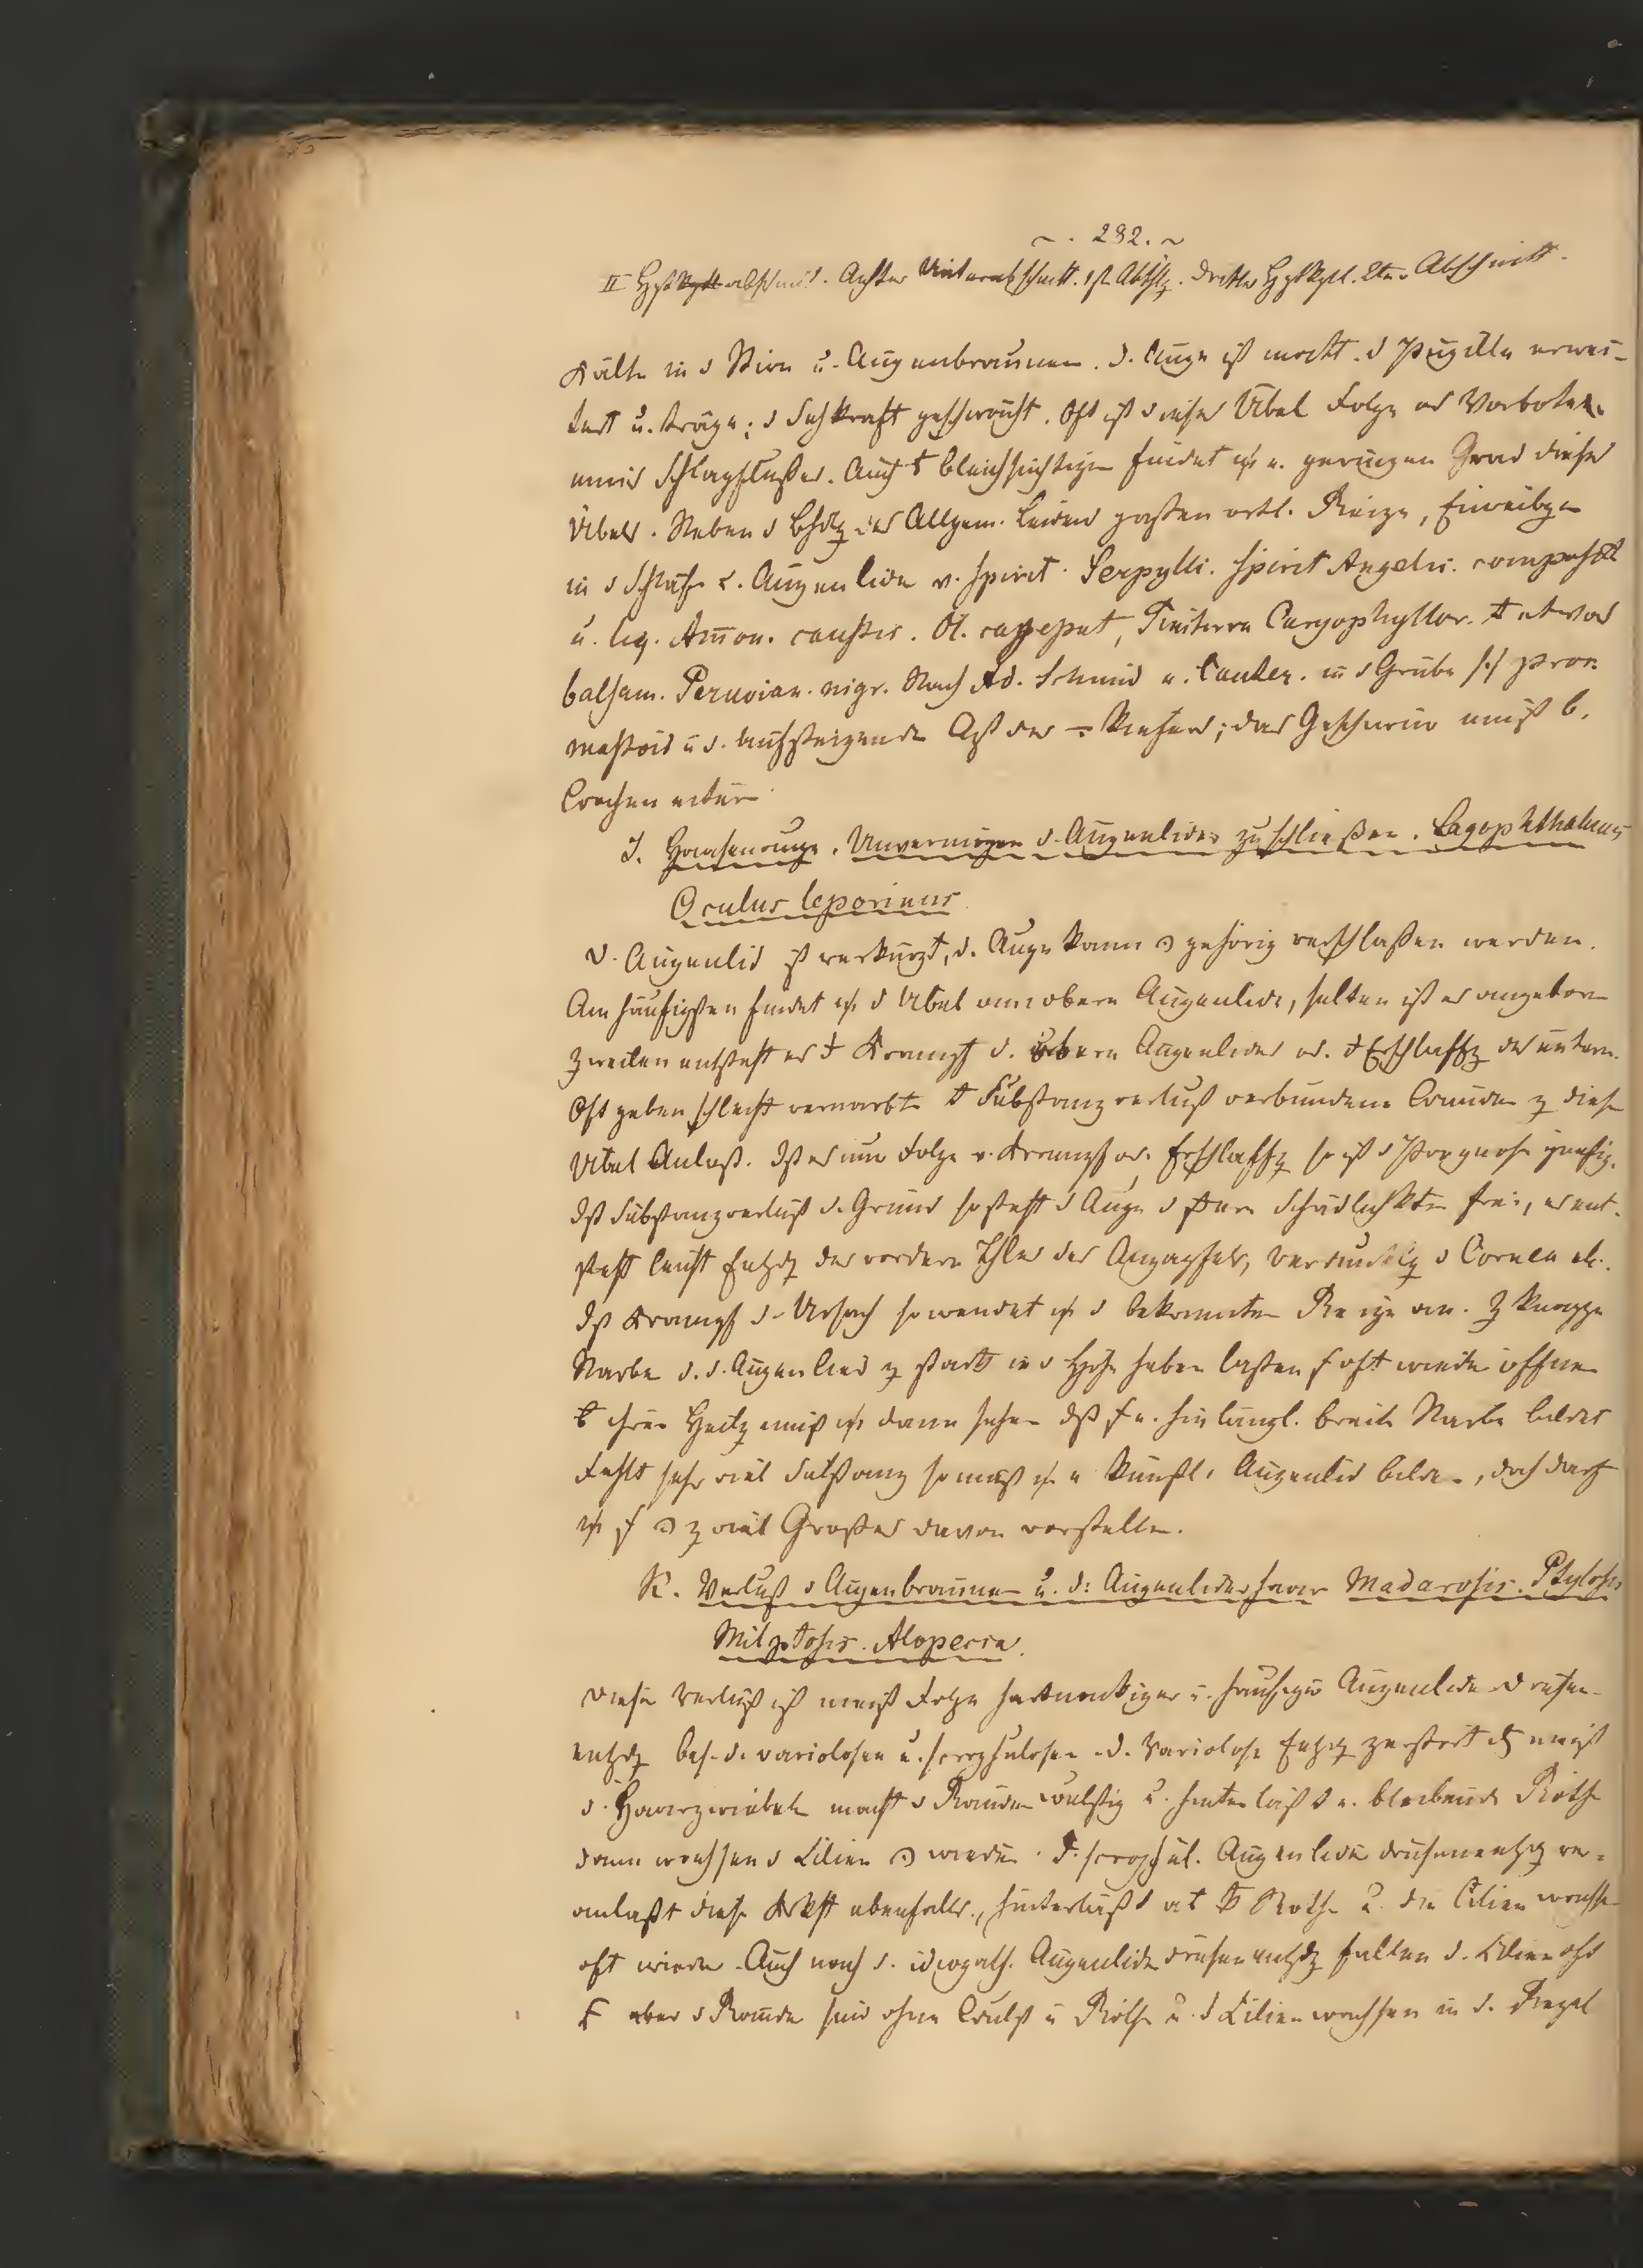 ~. 292. ~
II Hptabschnitt. Achter Unterabschnitt. 1st Abthlg. Dritter Hptkptl. 2ter Abschnitt.
Kälte in d Stirn u. Augenbraunen. D. Auge ist matt. d Pupille erwei-
tert u. träge; d Sehkraft geschwächt. Oft ist dieses Übel Folge od Vorbote
eines Schlagflußes. Auch Bleichsüchtigen findet e. geringen Grad dieses
Übels. Neben d Bhdlg des Allgem. Leidens passen örtl. Reize, Einreibgen
in d Schläfe u. Augenlider v. Spirit. Serpylli. Spirit Angelic. composit
u. liq. Amon. caustic. Ol. cajeput, Tinctura Caryophyllor. etwas
balsam. Peruvian. nigr. Nach Ad. Schmid e. Cauter. in d Grube proc.
mastoid u d. aufsteigende Ast des Kiefers; das Geschwür muß
Wochen eitern.
J. Haasenauge. Unvermögen d. Augenlider zu schließen. Lagophthalmus
Oculus leporinus
D. Augenlid ist verkürzt, d. Auge kann gehörig verschlossen werden.
Am häufigsten findet d Übel am obern Augenlide, selten ist es angeboren
zweilen entsteht es Krampf d. obern Augenlides od. Erschlaffg des untern.
Oft geben schlecht vernarbte Substanzverlust verbundene Wunden z diesem
Übel Anlaß. Ist es nur Folge v. Krampf od. Erschlaffg so ist d Prognose günstig.
Ist Substanzverlust d. Grund so steht d Auge d Schädlichkten frei, es ent-
steht leicht Entzdg des vordern Thles des Augapfels, Verdunklg d Cornea etc.
Ist Krampf d. Ursach so wendet d bekannten Reize an.
Narbe d. d. Augenlied z stark in d Höhe haben laßen oft wieder öffnen
ihrer Heilg muß dann sehen dß e. hinlängl. breite Narbe bildet
Fehlt sehr viel Substanz so muß e künstl. Augenlid bilden, doch darf
z viel Großes davon vorstellen.
K. Verlust d Augenbraunen u. d. Augenliderhaare Madarosis. Ptylosis
Milptosis. Alopecia.
Dieser Verlust ist meist Folge hartnäckiger u. häufiger Augenliderdrüsen-
entzdg bes. d. variolosen u. scrophulosen. D. Variolose Entzdg zerstört meist
d. Haarzwiebeln macht d Ränder wulstig u. hinterläßt e. bleibende Röthe
dann wachsen d Cilien wieder. D. scrophul. Augenlider drüsenentzdg ver-
anlaßt diese Krkht ebenfalls, hinterläßt Röthe u. die Cilien wachsen
oft wieder. Auch nach d. idiopath. Augenlider drüsenentzdg fallen d. Cilien oft
aber d Ränder sind ohne Wulst u Röthe u. d Cilien wachsen in d. Regel